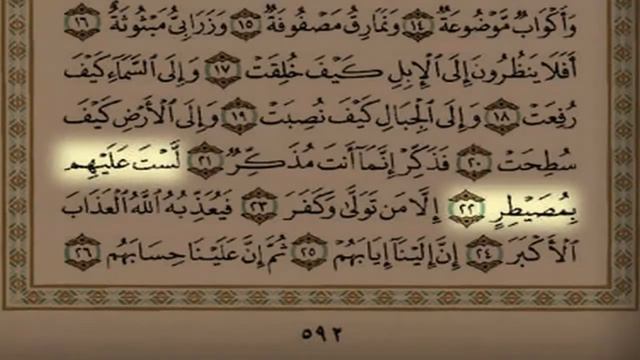 وَأَكْوَابٌ مَّوْضُوعَةٌ ١٤ وَنَمَارِقُ مَصْفُوفَةٌ ١٥ وَزَرَابِيُّ مَبْثُوثَةٌ ١٦
أَفَلَا يَنظُرُونَ إِلَى الْإِبِلِ كَيْفَ خُلِقَتْ ١٧ وَإِلَى السَّمَاءِ كَيْفَ
رُفِعَتْ ١٨ وَإِلَى الْجِبَالِ كَيْفَ نُصِبَتْ ١٩ وَإِلَى الْأَرْضِ كَيْفَ
سُطِحَتْ ٢٠ فَذَكِّرْ إِنَّمَا أَنتَ مُذَكِّرٌ ٢١ لَّسْتَ عَلَيْهِم
بِمُصَيْطِرٍ ٢٢ إِلَّا مَن تَوَلَّىٰ وَكَفَرَ ٢٣ فَيُعَذِّبُهُ اللَّهُ الْعَذَابَ
الْأَكْبَرَ ٢٤ إِنَّ إِلَيْنَا إِيَابَهُمْ ٢٥ ثُمَّ إِنَّ عَلَيْنَا حِسَابَهُم ٢٦
٥٩٢